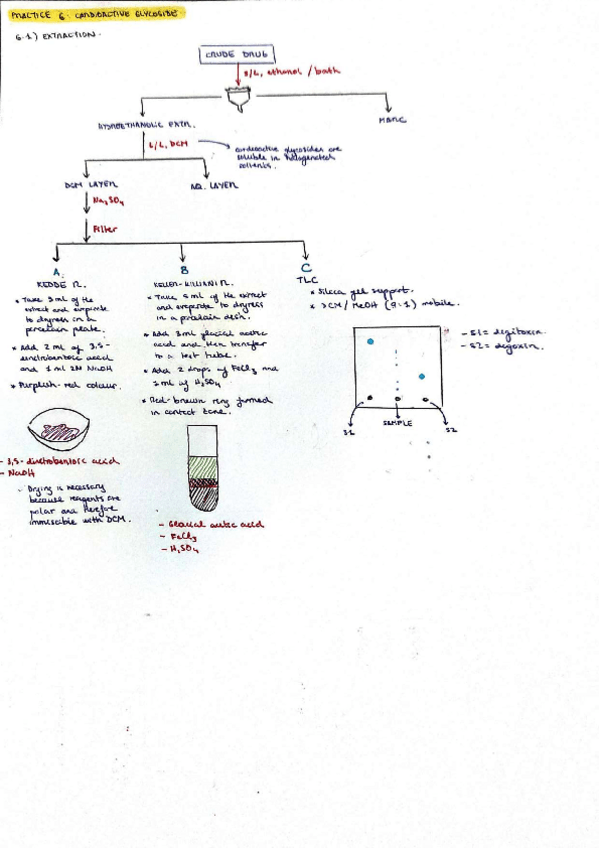 PRACTICE 6: CARDIOACTIVE GLYCOSIDE
6.1) EXTRACTION.
CRUDE DRUG
S/L, ethanol / bath
HYDROETHANOLIC EXTR.
MARC
L/L, DCM
cardioactive glycosides are
soluble in halogenated
solvents.
DCM LAYER
AQ. LAYER
Na2SO4
Filter
A
KEDDE R.
* Take 5 ml of the
extract and evaporate
to dryness in a
porcelain plate.
* Add 2 ml of 3,5-
dinitrobenzoic acid
and 1 ml 2M NaOH
* Purplish-red colour.
- 3,5-dinitrobenzoic acid
- NaOH
Drying is necessary
because reagents are
polar and therefore
immiscible with DCM.
B
KELLER-KILLIANI R.
* Take 5 ml of the extract
and evaporate to dryness
in a porcelain dish.
* Add 3 ml glacial acetic
acid and then transfer
to a test tube.
* Add 2 drops of FeCl3 and
1 ml of H2SO4
* Red-brown ring formed
in contact zone.
- Glacial acetic acid
- FeCl3
- H2SO4
C
TLC
* Silica gel support.
* DCM/MeOH (9:1) mobile.
- S1 = digitoxin
- S2 = digoxin.
S1
SAMPLE
S2